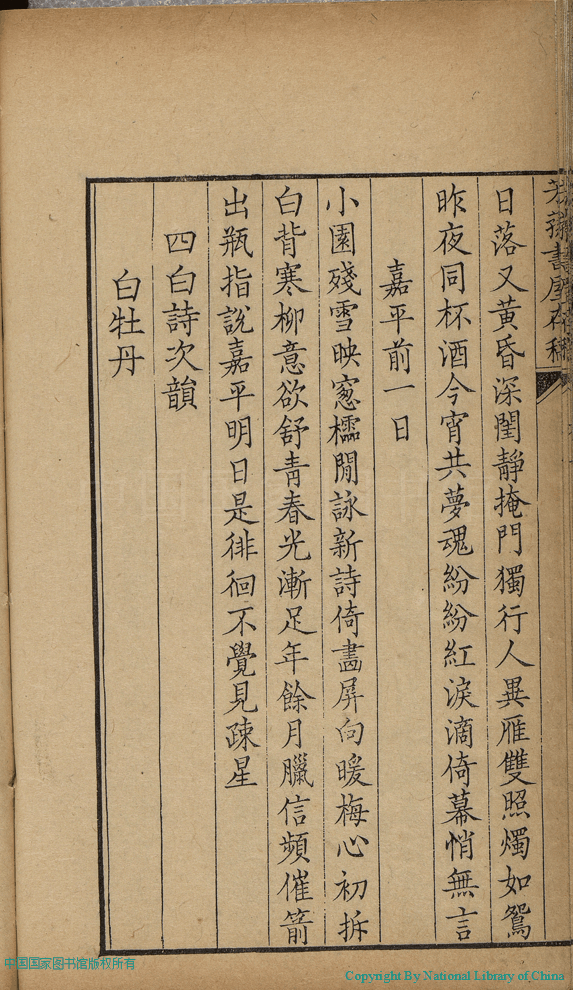 芳蓀書屋存稿
日落又黃昏深閨靜掩門獨行人異雁雙照燭如鴛
昨夜同杯酒今宵共夢魂紛紛紅淚滴倚幕悄無言
嘉平前一日
小園殘雪映窻櫺閒詠新詩倚畵屏向暖梅心初拆
白背寒柳意欲舒靑春光漸足年餘月臘信頻催箭
出瓶指說嘉平明日是徘徊不覺見疎星
四白詩次韻
白牡丹
中国国家图书馆版权所有
Copyright By National Library of China